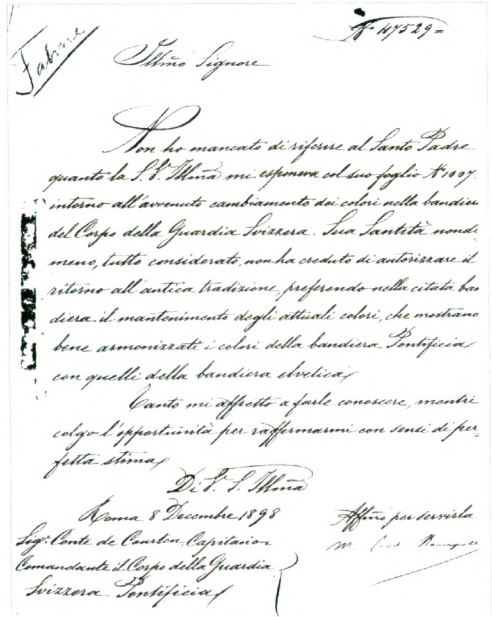 Fabrine
No 47529=
Illmo Signore
Non ho mancato di riferire al Santo Padre
quanto la S. V. Illma mi esponeva col suo foglio No 1007
intorno all'avvenuto cambiamento dei colori nella bandier
del Corpo della Guardia Svizzera. Sua Santità nondi
meno, tutto considerato, non ha creduto di autorizzare il
ritorno all'antica tradizione, preferendo nella citata ban
diera il mantenimento degli attuali colori, che mostrano
bene armonizzati i colori della bandiera Pontificia
con quelli della bandiera elvetica,
Tanto mi affretto a farle conoscere, mentre
colgo l'opportunità per raffermarmi con sensi di per
fetta stima,
Di V. S. Illma
Roma 8 Decembre 1898
Affmo per servirla
Sigr. Conte de Courten Capitano
M. Card.
Comandante il Corpo della Guardia
Svizzera Pontificia